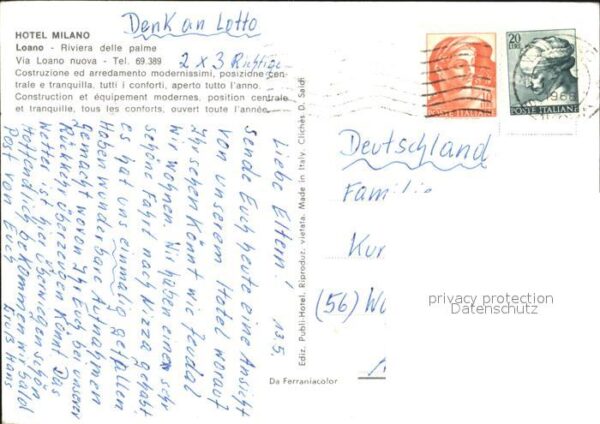 Denk an Lotto
2 x 3 Richtige
HOTEL MILANO
Loano - Riviera delle palme
Via Loano nuova - Tel. 69.389
Costruzione ed arredamento modernissimi, posizione cen-
trale e tranquilla. tutti i conforti, aperto tutto l'anno.
Construction et équipement modernes, position centrale
et tranquille, tous les conforts, ouvert toute l'année.
Liebe Eltern! 13.5.
Sende Euch heute eine Ansicht
von unserem Hotel worauf
Ihr sehen könnt wie feudal
wir wohnen. Wir haben eine sehr
schöne Fahrt nach Nizza gehabt,
es hat uns einmalig gefallen.
Haben wunderbare Aufnahmen
gemacht wovon Ihr Euch bei unserer
Rückkehr überzeugen könnt. Das
Wetter ist hier überwiegend schön
Hoffendlich bekommen wir bald
Post von Euch
Gruß Hans
Ediz. Publi-Hotel. Riproduz. vietata. Made in Italy. Clichés D. Saidi
Da Ferraniacolor
POSTE ITALIANE
20
LIRE
POSTE ITALIANE
196
Deutschland
Famili
Kur
(56) Wu
privacy protection
Datenschutz